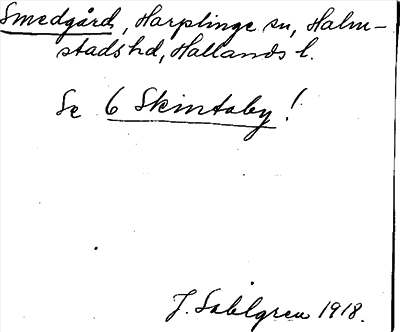 Smedgård, Harplinge sn, Halm-
stads hd, Hallands l.
Se 6 Skintaby!
J. Sahlgren 1918.